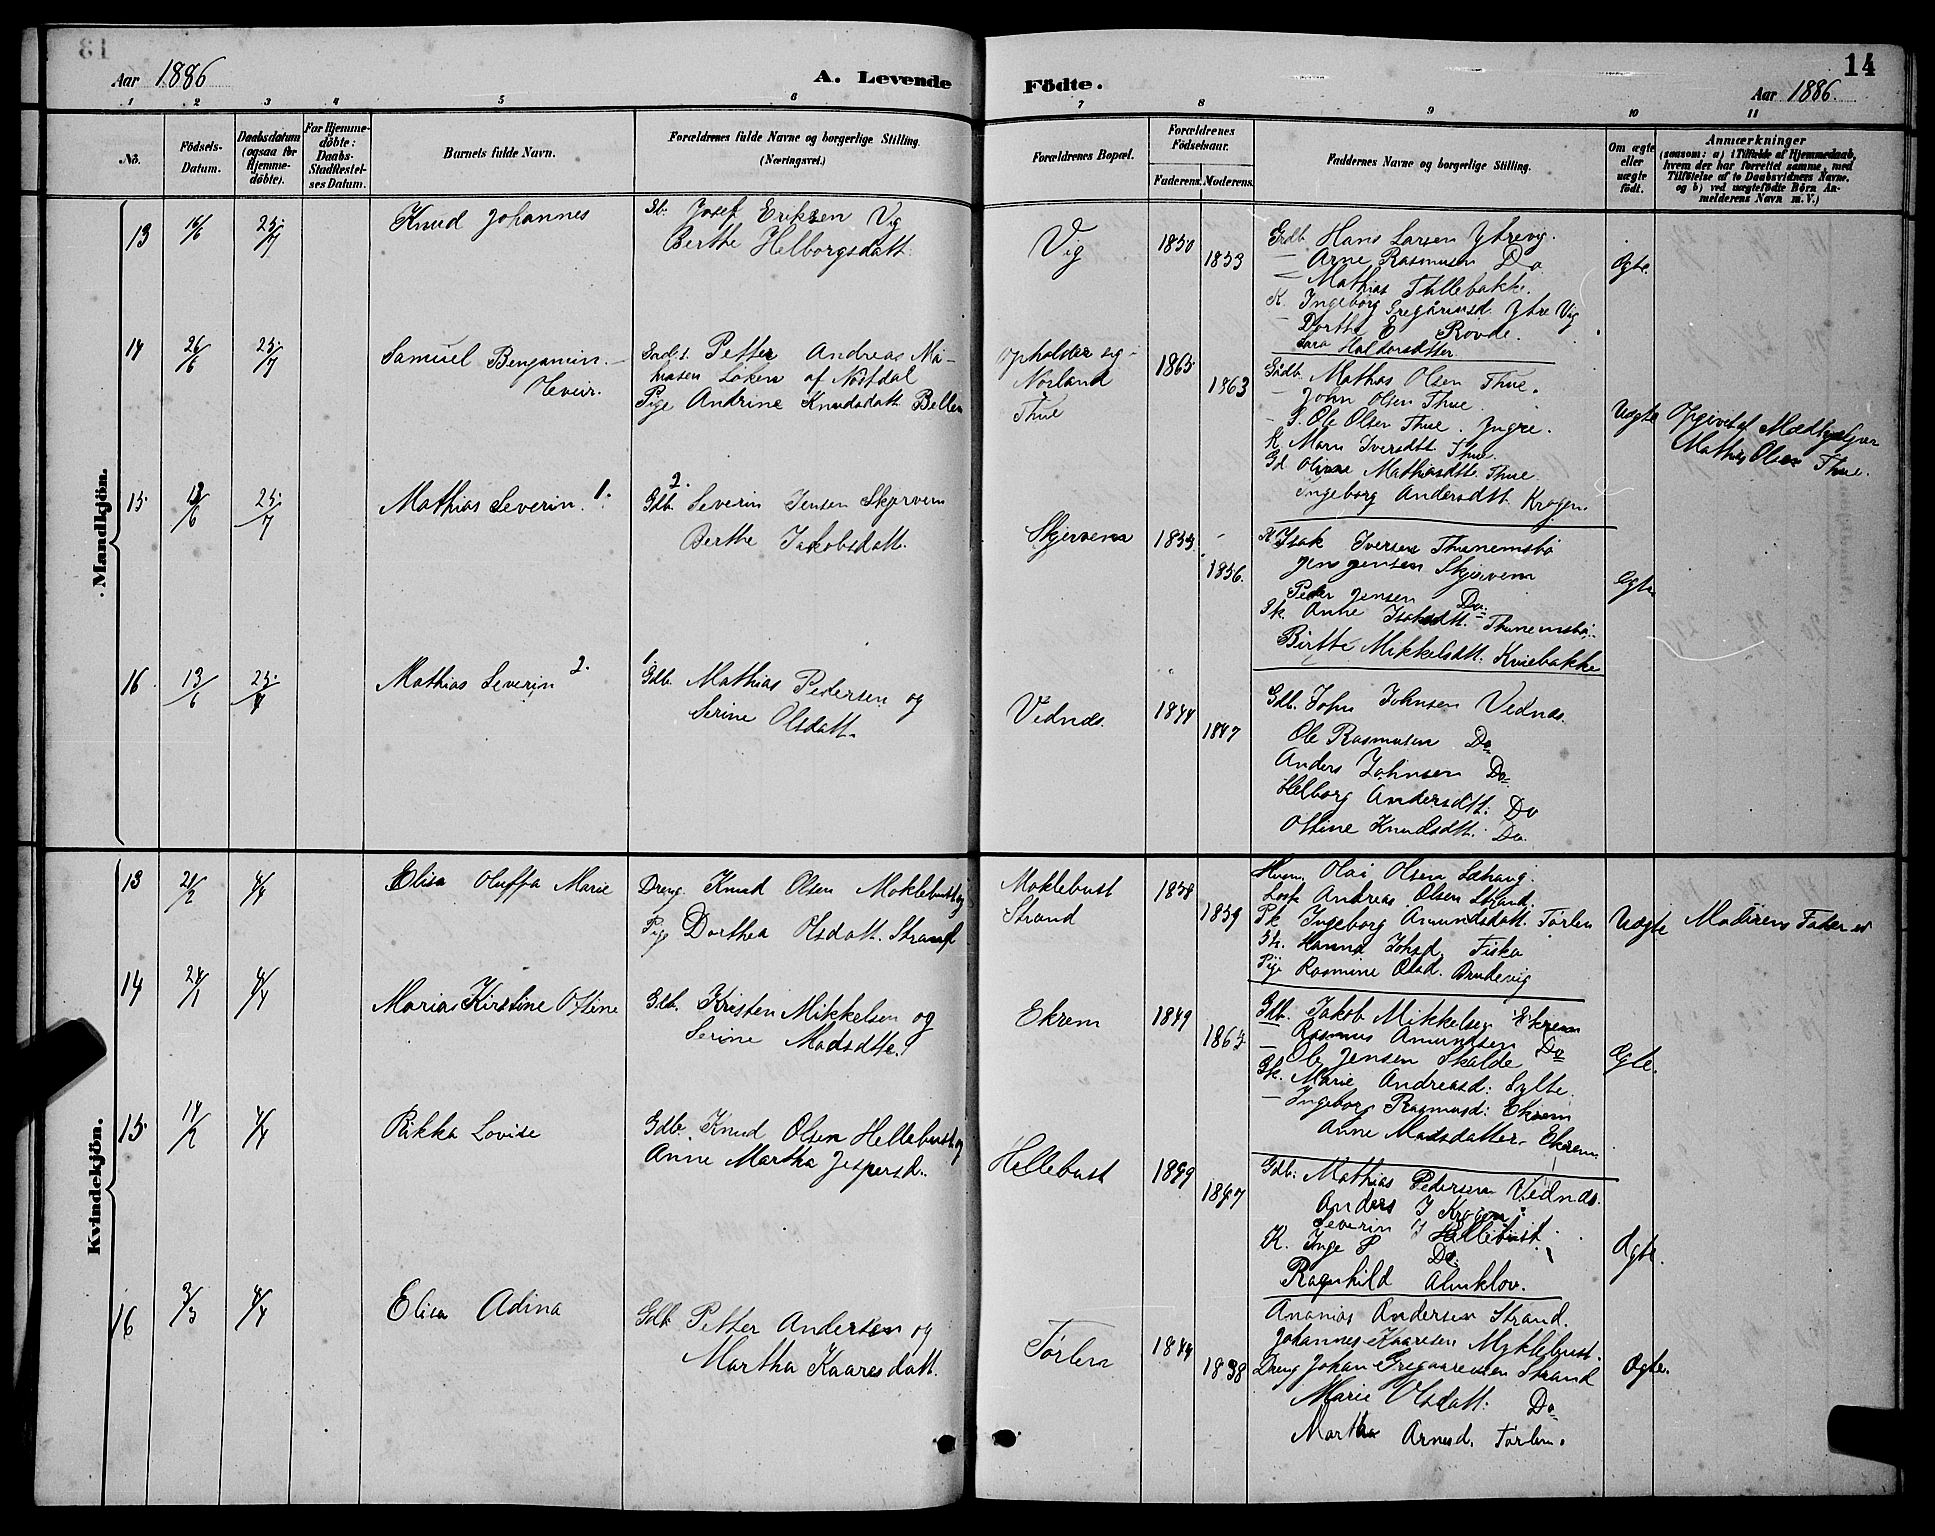 Aar 1886
A. Levende
Födte.
14
Aar 1886.
1 2 3 4 5 6 7 8 9 10 11
No.
Födsels-Datum.
Daabsdatum (ogsaa for Hjemme-döbte).
For Hjemme-döbte: Daabs-Stadfæstel-ses Datum.
Barnets fulde Navn.
Forældrenes fulde Navne og borgerlige Stilling. (Næringsvei.)
Forældrenes Bopæl.
Forældrenes Födselsaar.
Faderens. Moderens.
Faddernes Navne og borgerlige Stilling.
Om ægte eller uægte födt.
Anmærkninger
(saasom: a) i Tilfælde af Hjemmedaab, hvem der har forrettet samme, med Tilföielse af to Daabsvidners Navne, og b) ved uægtefödte Börn An-melderens Navn m. V.)
Mandkjön.
13
25/7
Knud Johannes
Josef Eriksen Vig
Berthe Helborgsdatt.
Vig
1850
1853
Grdb. Hans Larsen Ytrevig.
— Arne Rasmusen Do
— Mathias Tullebakke.
K. Ingeborg Gregāriusd. Ytre Vig
Dorthe E Rovde.
Sara Haldorsdtter
Ægte
14
26/6
25/7
Samuel Bengamin
Petter Andreas Ma-
thiasen Løken af Nöstdal
Pige Andrine Knudsdatt. Bellen
Opholder sig
Norland
Thue
1865
1863
Gådb. Mathias Olsen Thue.
— John Olsen Thue.
S. Ole Olsen Thue. Yngre.
K. Marn Iversdtt Thue.
Gd Olina Mathiasdtt. Thue.
Ingeborg Andersdtt. Krogen
Uægte
Opgivet af
Mathis Olsen Thue.
15
25/7
Mathias Severin. 1.
2.
Gdb. Severin Jensen Skjervem
Berthe Jakobsdatt.
Skjervem
1853
1856.
K Isak Iversen Thunemsbø
Jens Jensen Skjervem
Peder Jensen Do.
Pk. Anne Isaksdtt. Thunemsbø.
Birtte Mikkelsdtt. Knebakke
Ægte
16
13/6
25/7
Mathias Severin 2.
1.
Gdb. Mathias Pedersen og
Serine Olsdatt.
Vednes.
1844
1847
Gdb. John Johnsen Vednes.
Ole Rasmusen Do
Anders Johnsen Do
Helborg Andersdtt. Do
Oline Knudsdtt. Do
Kvindekjön.
13
21/2
4/4
Elisa Oluffa Marie
Dreng Knud Olsen Moklebust og
Pige Dorthea Olsdatt. Strand
Moklebust
Strand
1858
1859
Husm. Olai Olsen Sæhaug.
Losk. Andreas Olsen Strand.
Pk Ingeborg Amundsdatt. Tørlen
Hanna Johsd. Fiska
Pige Rasmine Olsd. Brudevig
Uægte
Moderens Fader
14
24/1
4/4
Maria Kirstine Oline
Gdb. Kristen Mikkelsen og
Serine Madsdtt.
Ekrem
1849
Gdb. Jakob Mikkelsen Ekrem
— Rasmus Amundsen Do
— Ole Jensen Skalde
Gk. Marie Andreasd: Sylte
— Ingeborg Rasmusd: Ekrem
Anne Madsdatter Ekrem
Ægte.
15
4/4
Rikka Lovise
Gdb. Knud Olsen Hellebust og
Anne Martha Jespersd.
Hellebust
1849
1847
Gdb: Mathias Pedersen Vednes.
Anders J Krogen
Severin J Hellebust.
K. Inge P Do.
Ragnhild Almklov.
Ægte.
16
3/3
4/4
Elisa Adina
Gdb. Petter Andersen og
Martha Kaaresdatt.
Tørlen
1844
1838
Ananias Andersen Strand.
Johannes Kaaresen Myklebust.
Dreng Johan Gregaaresen Strand
Marie Olsdatt. Do
Martha Arnesd. Tørlen.
Ægte.